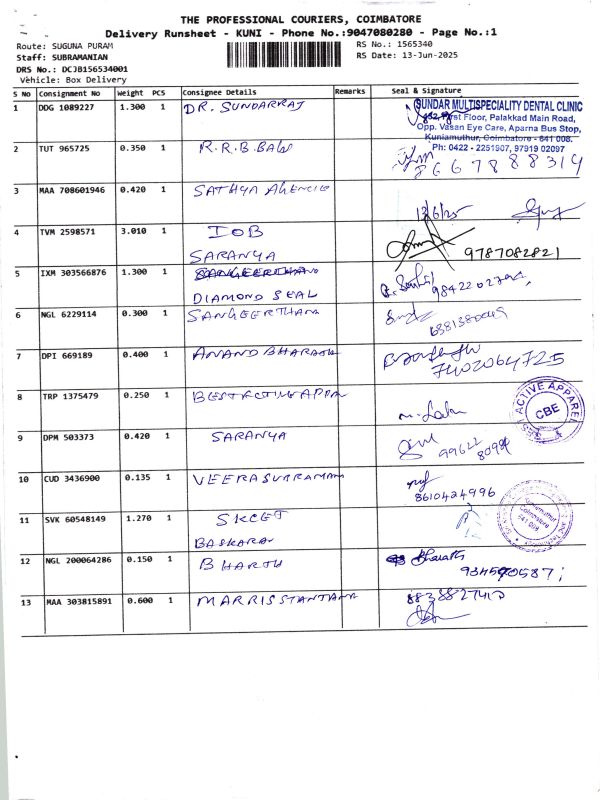 THE PROFESSIONAL COURIERS, COIMBATORE
Delivery Runsheet - KUNI - Phone No.:9047080280 - Page No.:1
Route: SUGUNA PURAM
RS No.: 1565340
Staff: SUBRAMANIAN
RS Date: 13-Jun-2025
DRS No.: DCJB156534001
Vehicle: Box Delivery
S No Consignment No Weight PCS Consignee Details Remarks Seal & Signature
1 DDG 1089227 1.300 1 DR. SUNDARRAJ
SUNDAR MULTISPECIALITY DENTAL CLINIC
First Floor, Palakkad Main Road,
Opp. Vasan Eye Care, Aparna Bus Stop,
Kuniamuthur, Coimbatore - 641 008.
Ph: 0422 - 2251907, 97919 02097
2 TUT 965725 0.350 1 R.R.B.BABU
3 MAA 708601946 0.420 1 SATHYA AGENCIE
13/6/25
4 TVM 2598571 3.010 1 IOB
SARANYA 9787082821
5 IXM 303566876 1.300 1
DIAMOND SEAL
6 NGL 6229114 0.300 1 SANGEERTHANA
7 DPI 669189 0.400 1 ANAND BHARATH
7402064725
8 TRP 1375479 0.250 1
ACTIVE APPAREL
CBE
9 DPM 503373 0.420 1 SARANYA
10 CUD 3436900 0.135 1 VEERASUBRAMANI
8610424996
11 SVK 60548149 1.270 1 SKCET
BASKARAN
Kuniamuthur
Coimbatore
641 008
12 NGL 200064286 0.150 1 BHARTH Bharath
13 MAA 303815891 0.600 1
8838827410